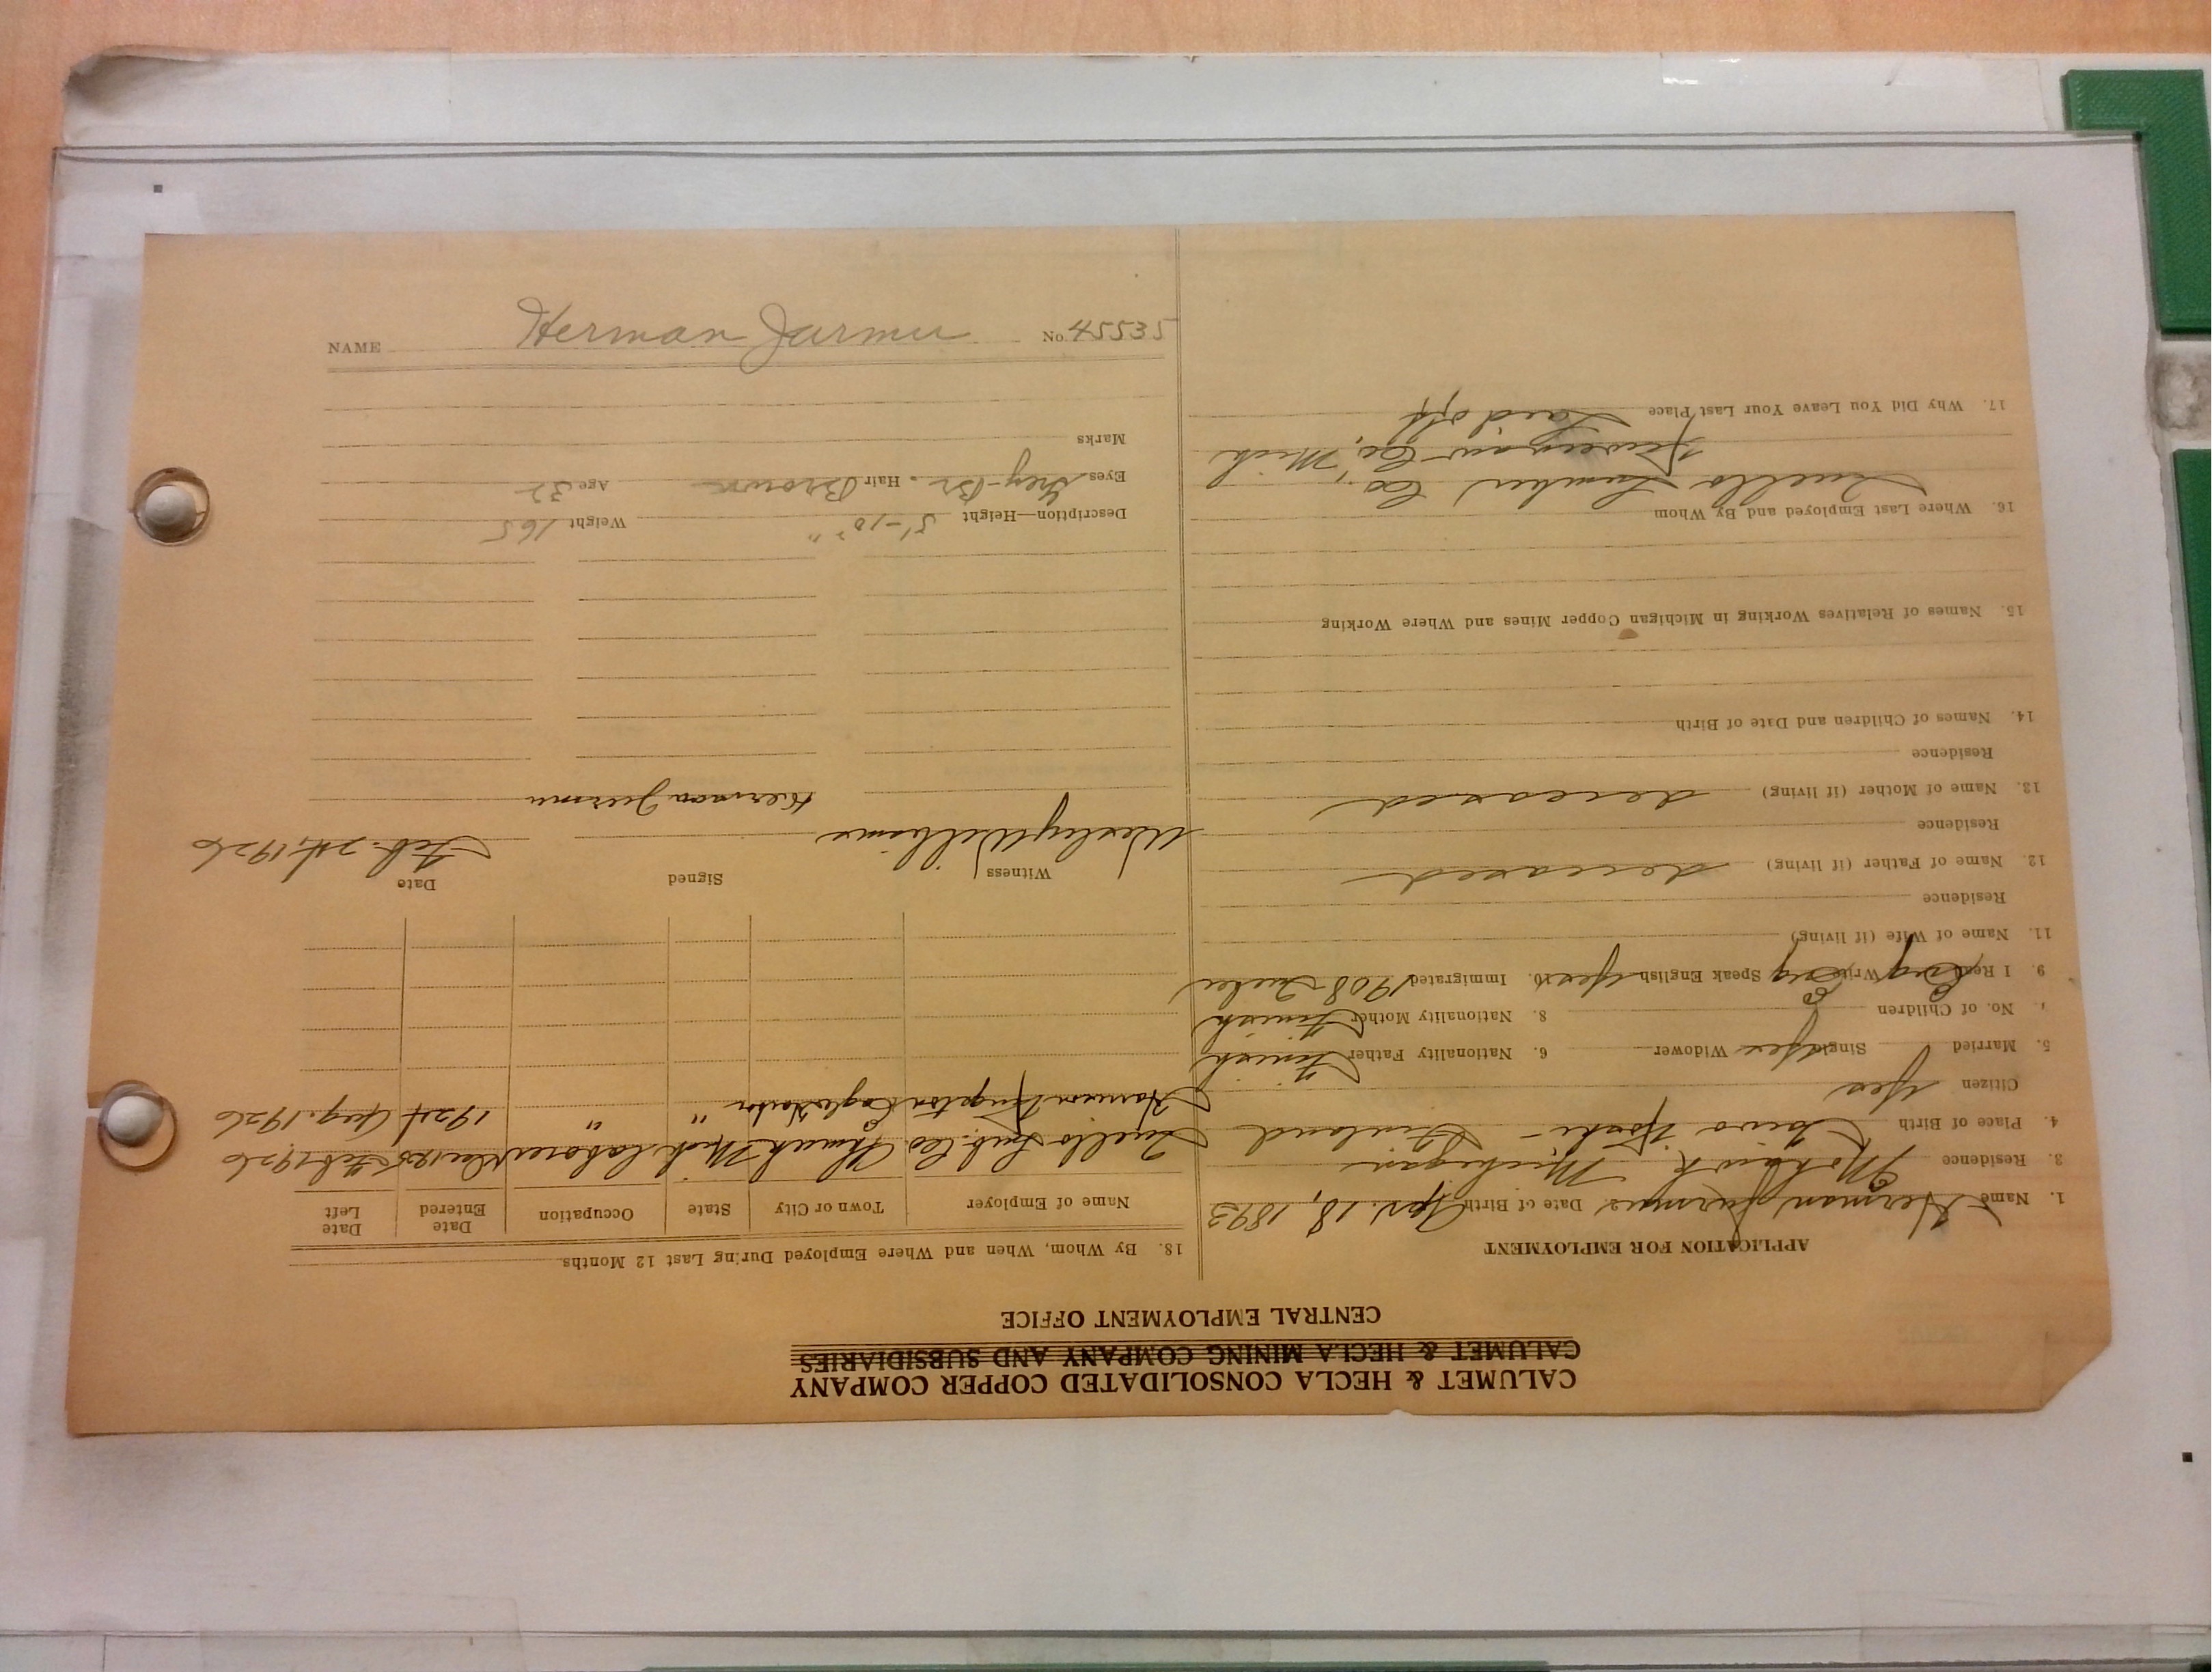 CALUMET & HECLA CONSOLIDATED COPPER COMPANY
CALUMET & HECLA MINING COMPANY AND SUBSIDIARIES
CENTRAL EMPLOYMENT OFFICE
APPLICATION FOR EMPLOYMENT
1. Name Herman Jurmu 2. Date of Birth 18, 1893
3. Residence Mohawk Michigan
4. Place of Birth - Finland
Citizen Yes
5. Married Single yes Widower 6. Nationality Father Finish
7. No. of Children 8. Nationality Mother Finish
9. I Read Eng Write Eng Speak English Yes 10. Immigrated 1908
11. Name of Wife (if living)
Residence
12. Name of Father (if living) deceased
Residence
13. Name of Mother (if living) deceased
Residence
14. Names of Children and Date of Birth
15. Names of Relatives Working in Michigan Copper Mines and Where Working
16. Where Last Employed and By Whom
Lumber Co.,
Keweenaw Co., Mich
17. Why Did You Leave Your Last Place Laid off
18. By Whom, When and Where Employed During Last 12 Months
Name of Employer Town or City State Occupation Date Entered Date Left
Lub. Co Mich Laborer Feb 1926
Harrison Kingston Eagle Harbor " " 1924 1926
Witness Signed Date
Wesley Williams Feb. 24, 1926
Herman Jurmu
Description—Height 5'-10" Weight 165
Eyes Grey-Br. Hair Brown Age 32
Marks
NAME Herman Jurmu No. 45535